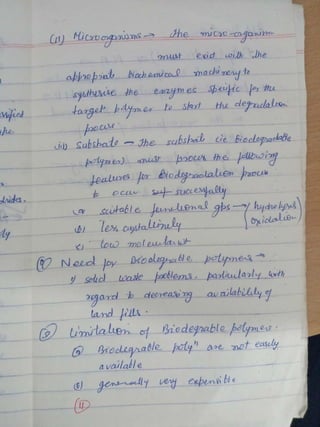 (ii) Microorganisms → The micro-organism
must exist with the
appropriate biochemical machinery to
synthesize the enzymes specific for the
target polymer to start the degradation
process
(iii) Substrate – The substrate (ie Biodegradable
polymer) must process the following
features for Biodegradation process
to occur successfully
a) suitable functional gps → hydrolysis
oxidation
b) less crystallinity
c) low molecular wt
Need for Biodegradable polymers →
1) solid waste problems, particularly with
regard to decreasing availability of
land fills.
Limitation of Biodegradable polymers.
(a) Biodegradable polyn are not easily
available
(b) generally very expensive
11